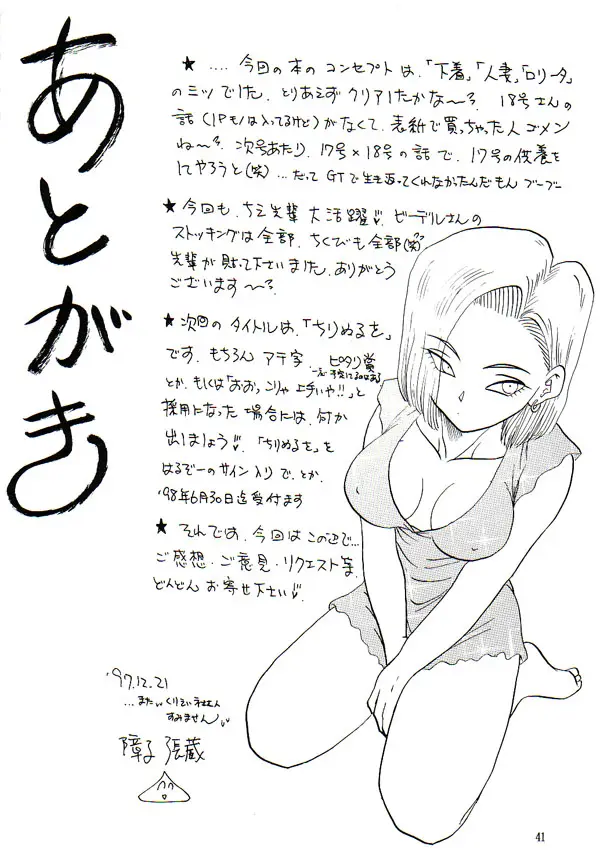 あとがき
★ .... 今回の本のコンセプトは、「下着」「人妻」「ロリータ」
の三ツでした。とりあえずクリアしたかな〜?。18号さんの
話(1Pモノは入ってるけど)がなくて、表紙で買っちゃった人ゴメン
ね〜?。次号あたり、17号×18号の話で、17号の供養を
してやろうと(笑)...だってGTで生き返ってくれなかったんだもんブーブー
★ 今回も、ちえ先輩大活躍。ビーデルさんの
ストッキングは全部、ちくびも全部(笑)
先輩が貼って下さいました。ありがとう
ございます〜?。
★ 次回のタイトルは、「ちりぬるを」
です。もちろんアテ字。ピタリ賞
とか、もしくは「おおっこりゃ上手いや!!」と
採用になった場合には、何か
出しましょう。「ちりぬるを」を
はるぞーのサイン入りで、とか。
'98年6月30日迄受付ます
★ それでは、今回はこの辺で...
ご感想・ご意見・リクエスト等、
どんどんお寄せ下さい。
'97.12.21
...また
すみません
障子張蔵
41